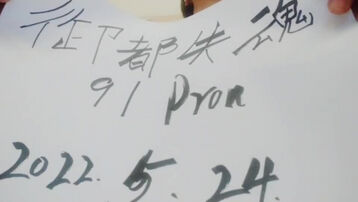 御都失魂
91 Pron
2022. 5. 24.